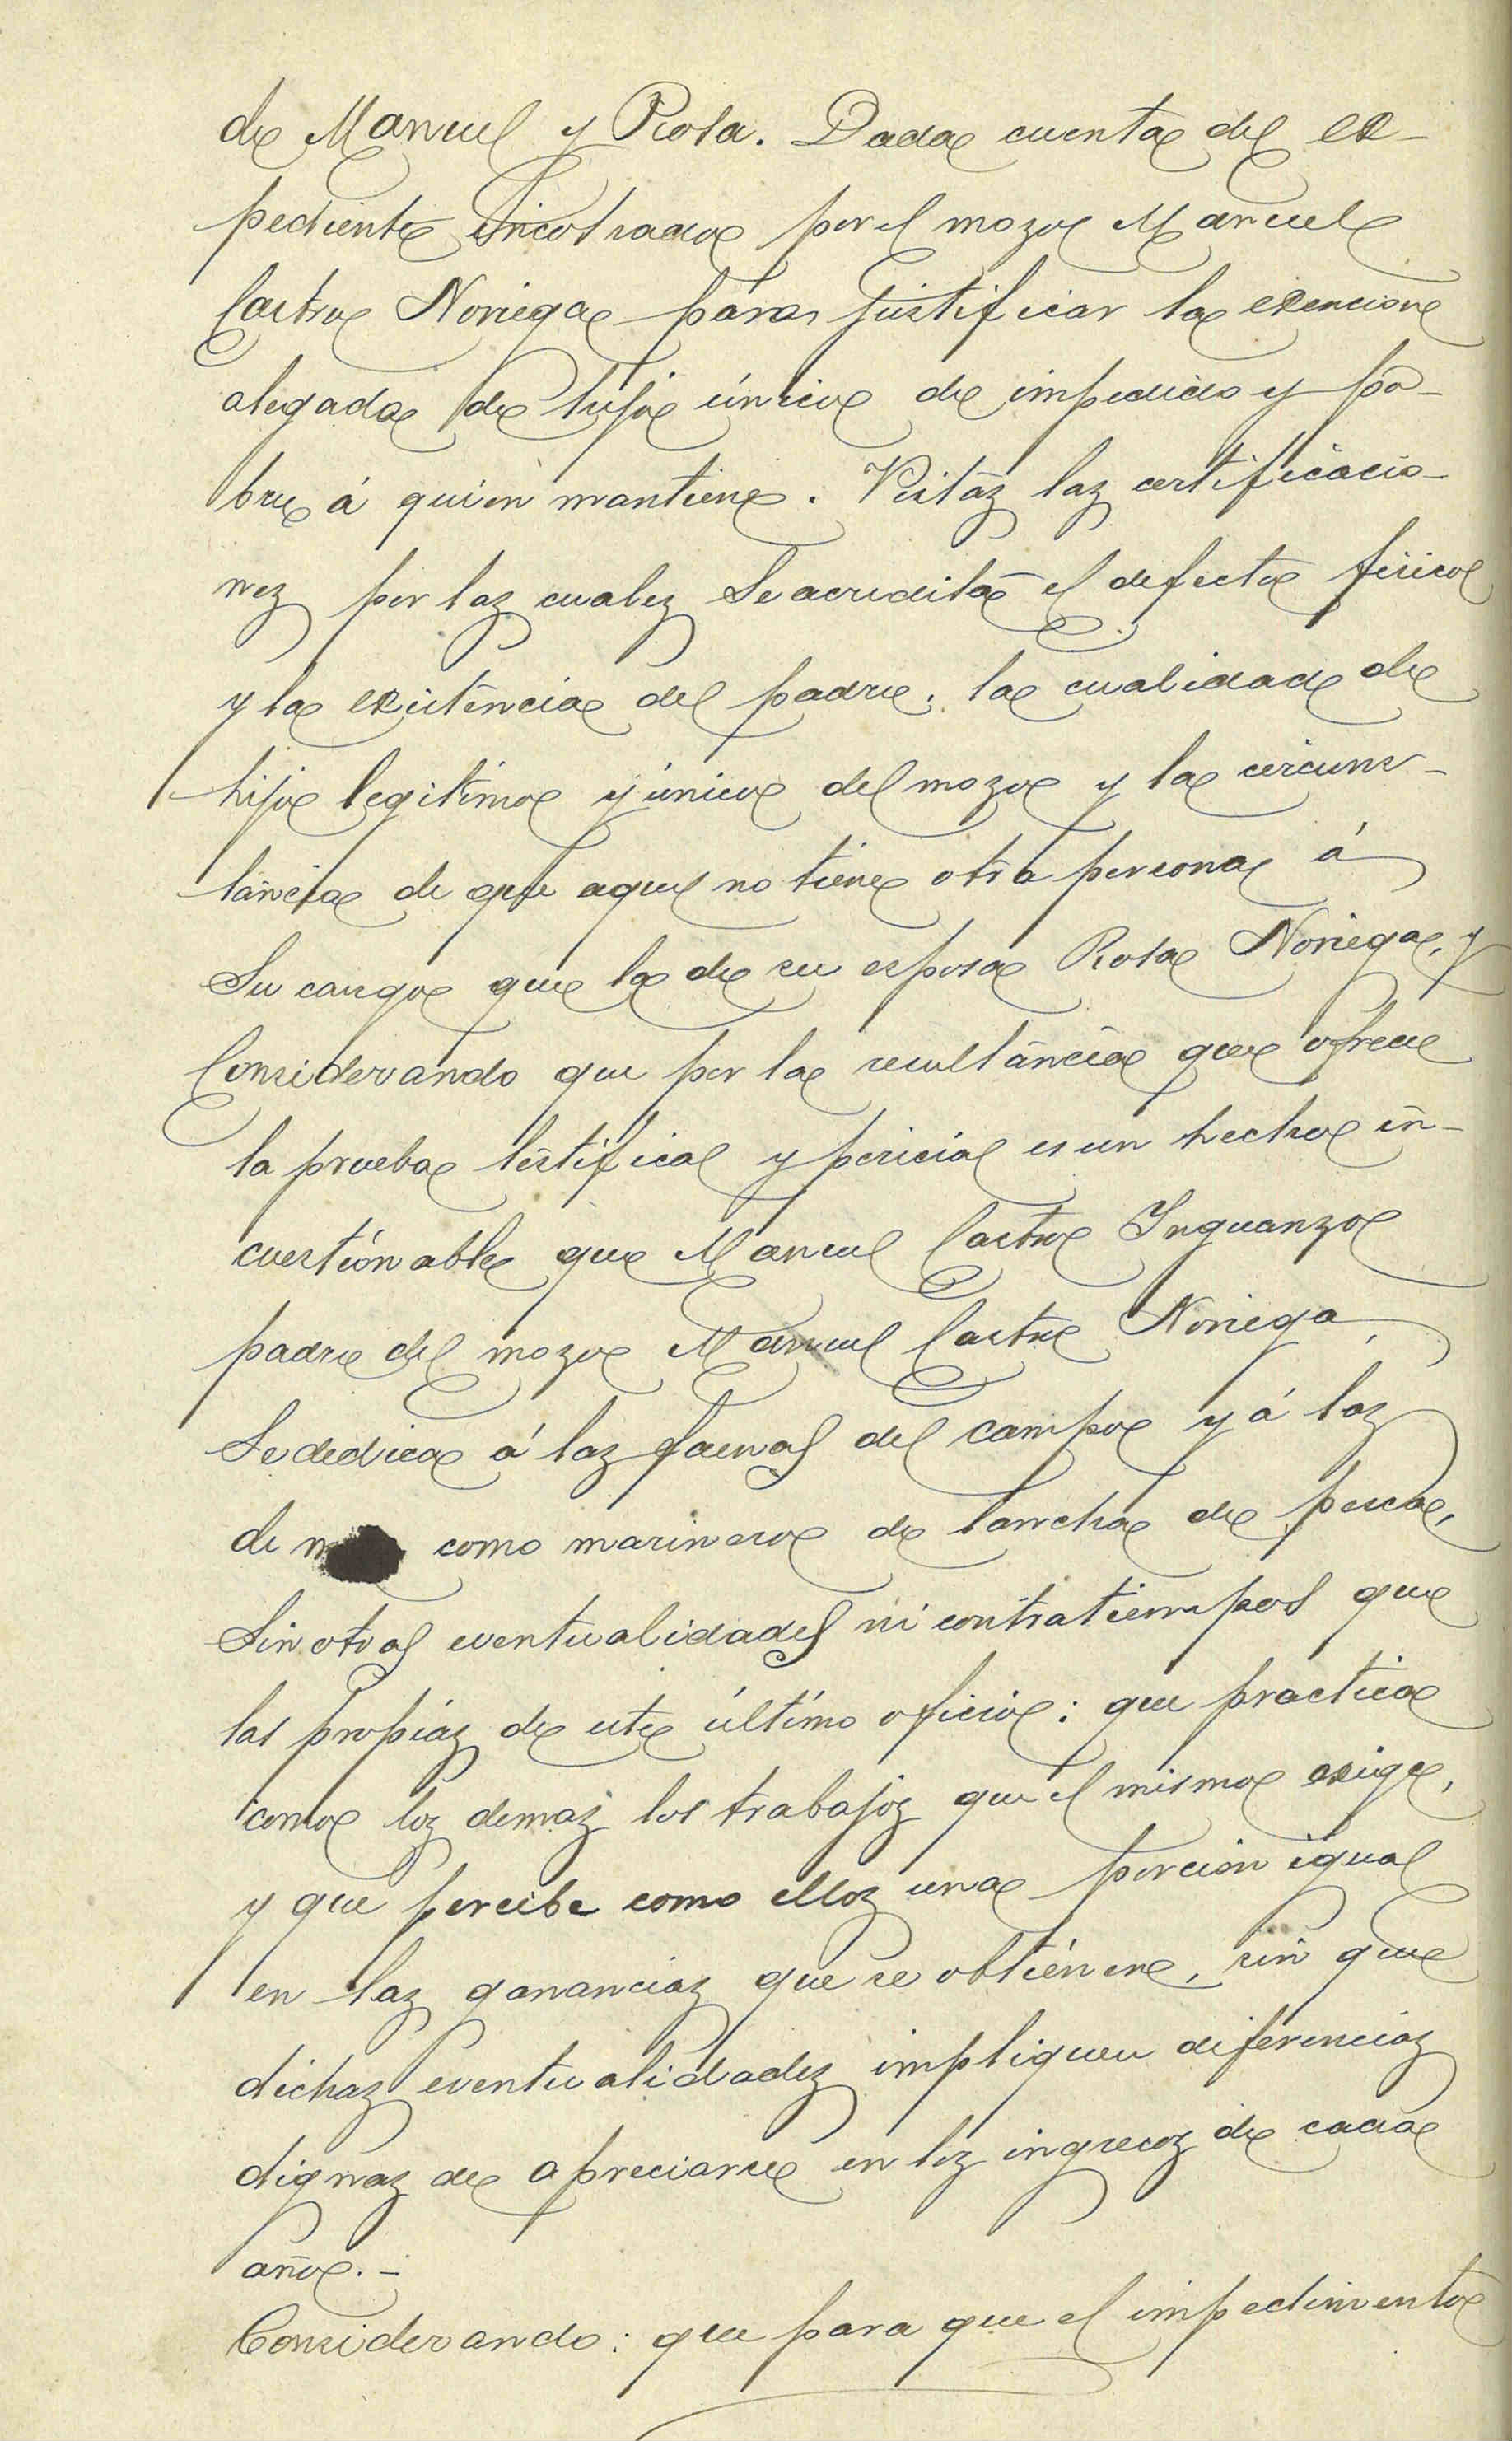 de Manuel y Rosa. Dada cuenta del ex-
pediente incohado por el mozo Manuel
Castro Noriega para justificar la exencion
alegada de hijo único de impedido y po-
bre á quien mantiene. Vistas las certificacio-
nes por las cuales se acredita el defecto físico
y la existencia del padre, la cualidad de
hijo legítimo y único del mozo y la circuns-
tancia de que aquel no tiene otra persona á
su cargo que la de su esposa Rosa Noriega, y
Considerando que por la resultancia que ofrece
la prueba testifical y pericial es un hecho in-
cuestionable que Manuel Castro Inguanzo
padre del mozo Manuel Castro Noriega,
se dedica á las faenas del campo y á las
de como marinero de lancha de pesca,
sin otras eventualidades ni contratiempos que
las propias de este último oficio: que practica
como los demas los trabajos que el mismo exige,
y que percibe como ellos una porcion igual
en las ganancias que se obtienen, sin que
dichas eventualidades impliquen diferencias
dignas de apreciarse en los ingresos de cada
año. -
Considerando: que para que el impedimento